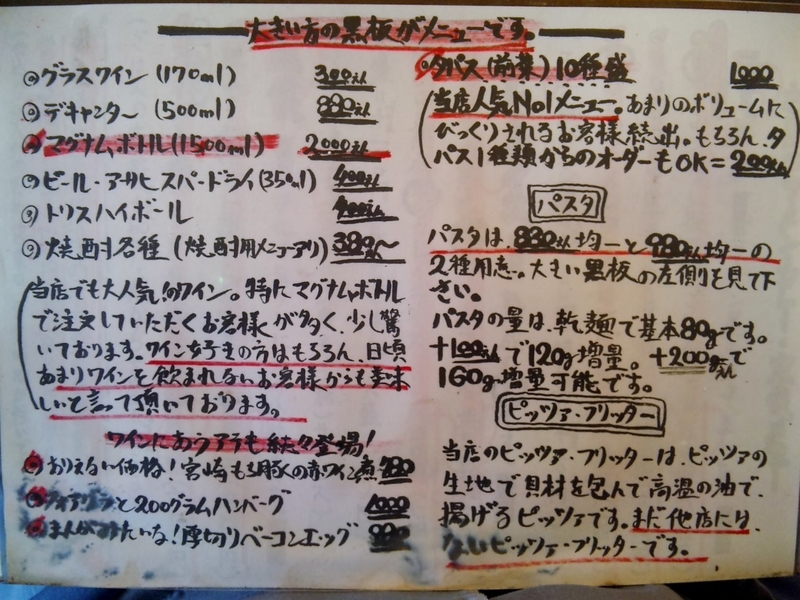 大きい方の黒板がメニューです。
グラスワイン (170ml) 300えん
デキャンター (500ml) 880えん
マグナムボトル(1500ml) 2000えん
ビール・アサヒスーパードライ(350ml) 400えん
トリスハイボール 400えん
焼酎各種 (焼酎用メニューアリ) 380〜
当店でも大人気!のワイン。特にマグナムボトル
で注文していただくお客様が多く、少し驚
いております。ワイン好きの方はもちろん、日頃
あまりワインを飲まれないお客様からも美味
しいと言って頂いております。
ワインにあうアテも続々登場!
ありえない価格!宮崎もち豚の赤ワイン煮 980
フォアグラと200グラムハンバーグ 1000
まんがみたいな!厚切りベーコンエッグ
タパス(前菜)10種盛 1000
(当店人気No1メニュー。あまりのボリュームに
びっくりされるお客様続出。もちろん、タ
パス1種類からのオーダーもOK=200えん)
パスタ
パスタは、880えん均一と980えん均一の
2種用意。大きい黒板の左側を見て下
さい。
パスタの量は、乾麺で基本80gです。
+100えんで120g増量。+200えんで
160g増量可能です。
ピッツァ・フリッター
当店のピッツァ・フリッターは、ピッツァの
生地で具材を包んで高温の油で、
揚げるピッツァです。まだ他店には、
ないピッツァ・フリッターです。